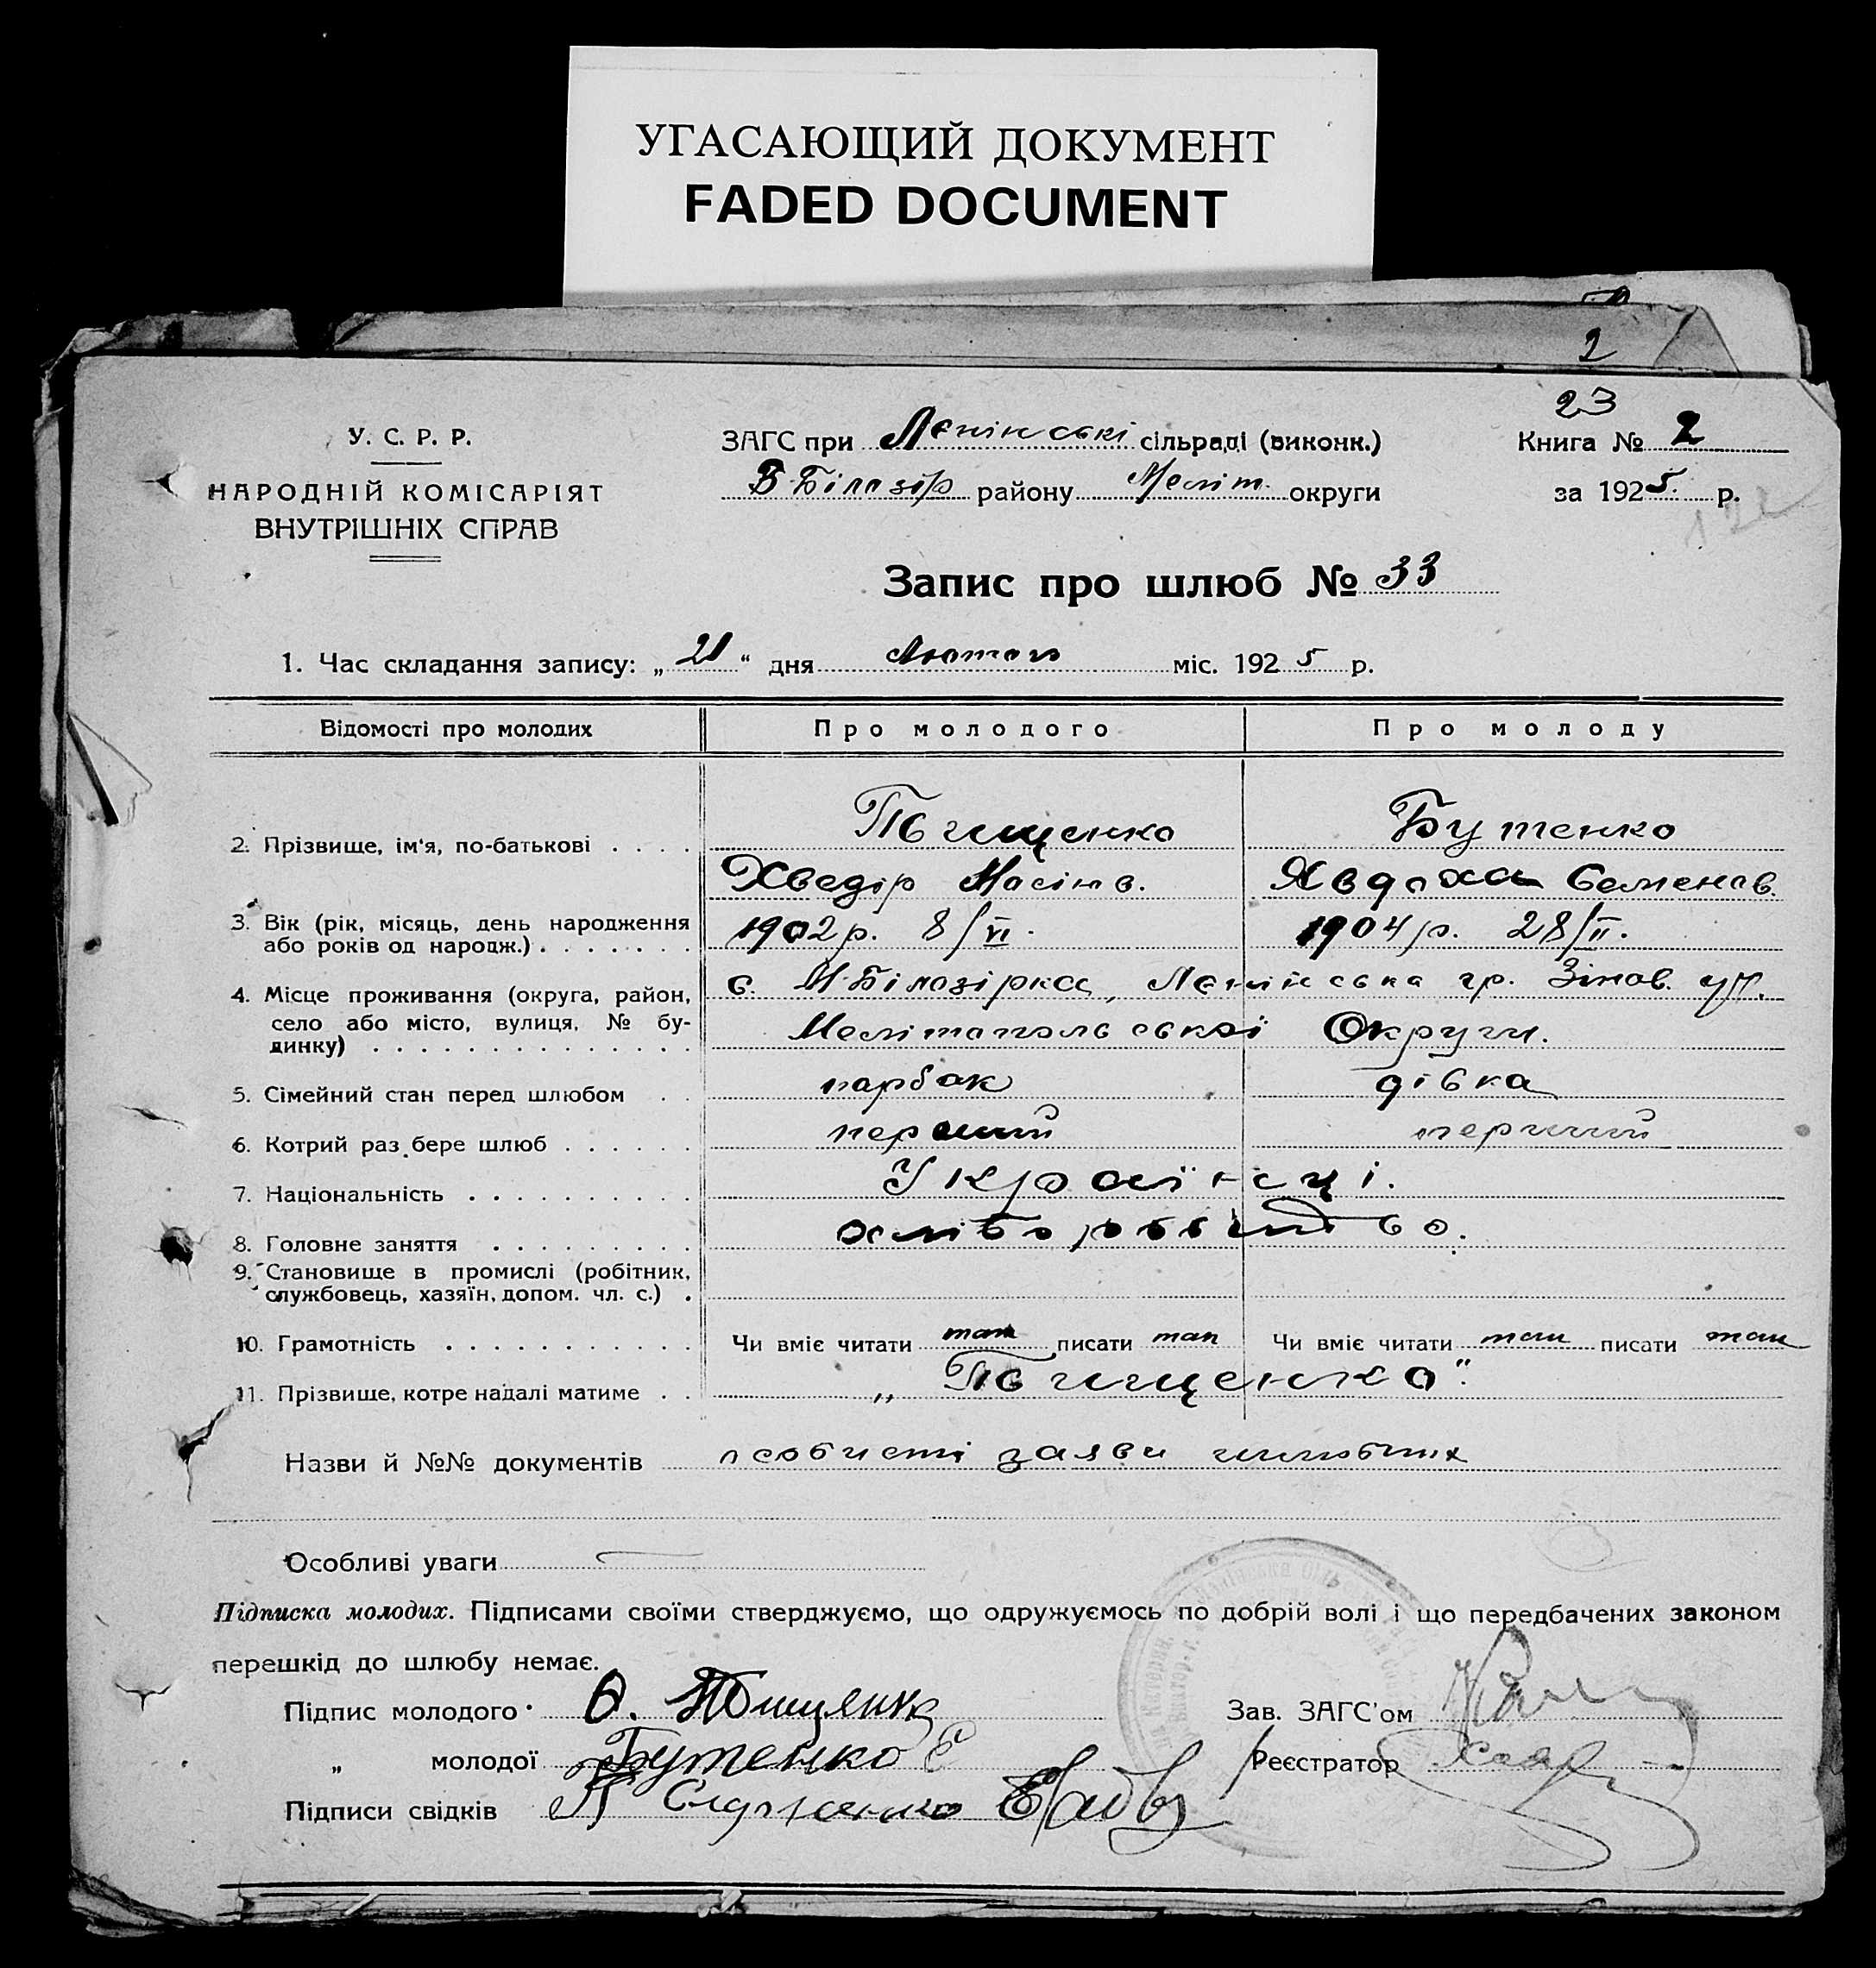 УГАСАЮЩИЙ ДОКУМЕНТ
FADED DOCUMENT
2
23
У. С. Р. Р.
НАРОДНІЙ КОМІСАРІЯТ
ВНУТРІШНІХ СПРАВ
ЗАГС при Ленінські сільраді (виконк.)
В-Білозір району Меліт. округи
Книга № 2
за 1925. р.
Запис про шлюб № 33
1. Час складання запису: „21“ дня Лютого міс. 1925 р.
Відомості про молодих Про молодого Про молоду
2. Прізвище, ім'я, по-батькові . . . .
Бутенко
Хведір Явдоха Семенов.
3. Вік (рік, місяць, день народження або років од народж.) . . . . . . .
1902 р. 8/VI. 1904 р. 28/II.
4. Місце проживання (округа, район, село або місто, вулиця, № будинку) . . . . . . . . . . . . . .
с. М-Білозірка, Ленінська гр.
Мелітопольської Округи.
5. Сімейний стан перед шлюбом . . парубок дівка
6. Котрий раз бере шлюб . . . . . . перший перший
7. Національність . . . . . . . . . . Українці.
8. Головне заняття . . . . . . . . . хліборобство.
9. Становище в промислі (робітник, службовець, хазяїн, допом. чл. с.) .
10. Грамотність . . . . . . . . . . . Чи вміє читати так писати так Чи вміє читати так писати так
11. Прізвище, котре надалі матиме . .
Назви й №№ документів особисті заяви шлюбних
Особливі уваги —
Підписка молодих. Підписами своїми стверджуємо, що одружуємось по добрій волі і що передбачених законом
перешкід до шлюбу немає.
Підпис молодого
Зав. ЗАГС'ом
„ молодої Бутенко Є
Реєстратор
Підписи свідків